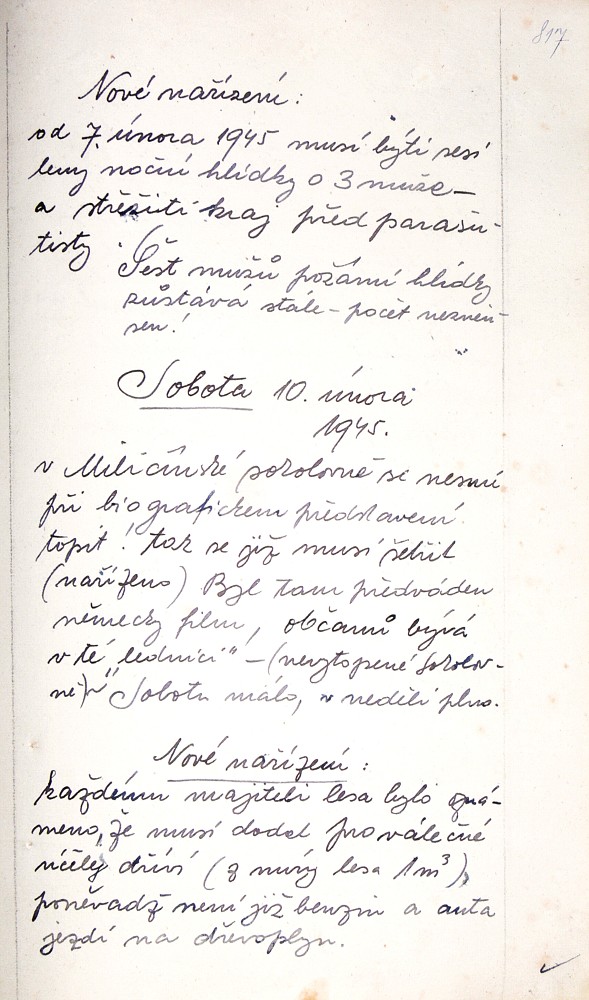 817
Nové nařízení:
od 7. února 1945 musí býti sesí
leny noční hlídky o 3 muže –
a střežiti kraj před parašu-
tisty.
Šest mužů požární hlídky
zůstává stále – počet nezmen-
šen!
Sobota 10. února
1945.
v Miličínské sokolovně se nesmí
při biografickem představení
topit! tak se již musí šetřit
(nařízeno) Byl tam předváděn
německy film, občanů bývá
v té „lednici“ – (nevytopené sokolov-
ně) – Sobotu málo, v neděli plno.
Nové nařízení:
každému majiteli lesa bylo ozná-
meno, že musí dodat pro válečné
účely dříví (z míry lesa 1m³),
poněvadž není již benzin a auta
jezdí na dřevoplyn.